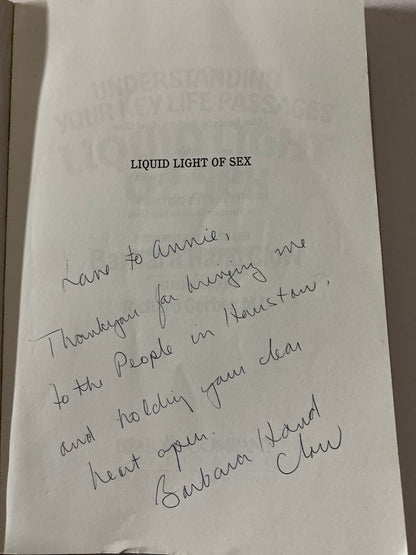 LIQUID LIGHT OF SEX
Love to Annie,
Thankyou for bringing me
to the People in Houston,
and holding your clear
heart open.
Barbara Hand
Clow